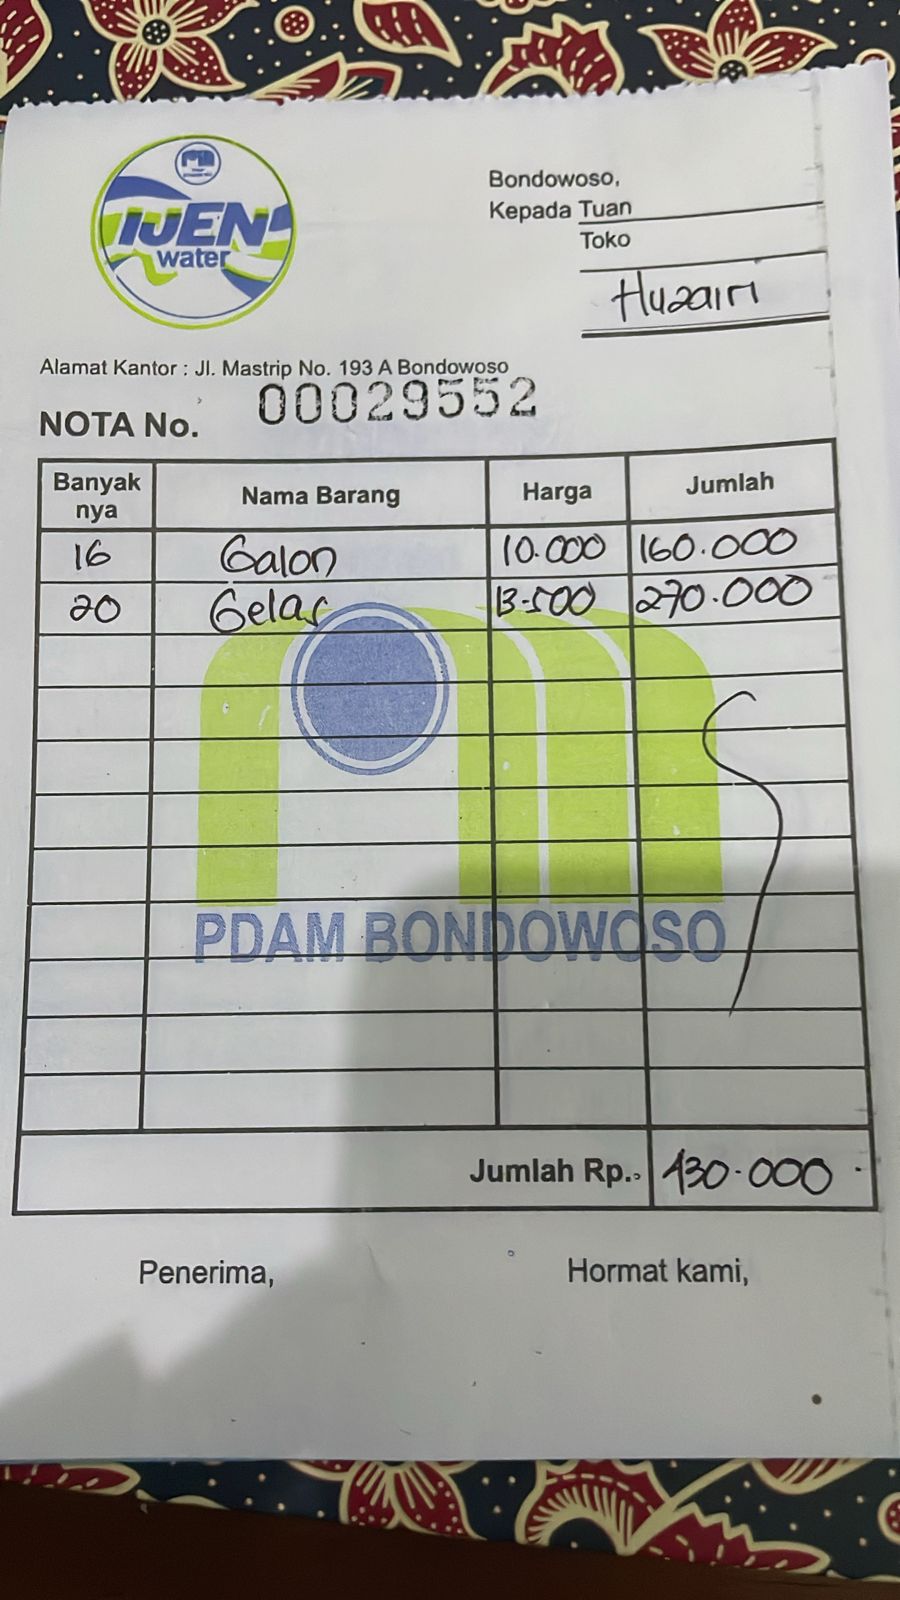 IJEN
water
Bondowoso,
Kepada Tuan
Toko
Huzairi
Alamat Kantor : Jl. Mastrip No. 193 A Bondowoso
NOTA No. 00029552
Banyak nya Nama Barang Harga Jumlah
16 Galon 10.000 160.000
20 Gelas 13.500 270.000
PDAM BONDOWOSO
Jumlah Rp. 430.000
Penerima, Hormat kami,